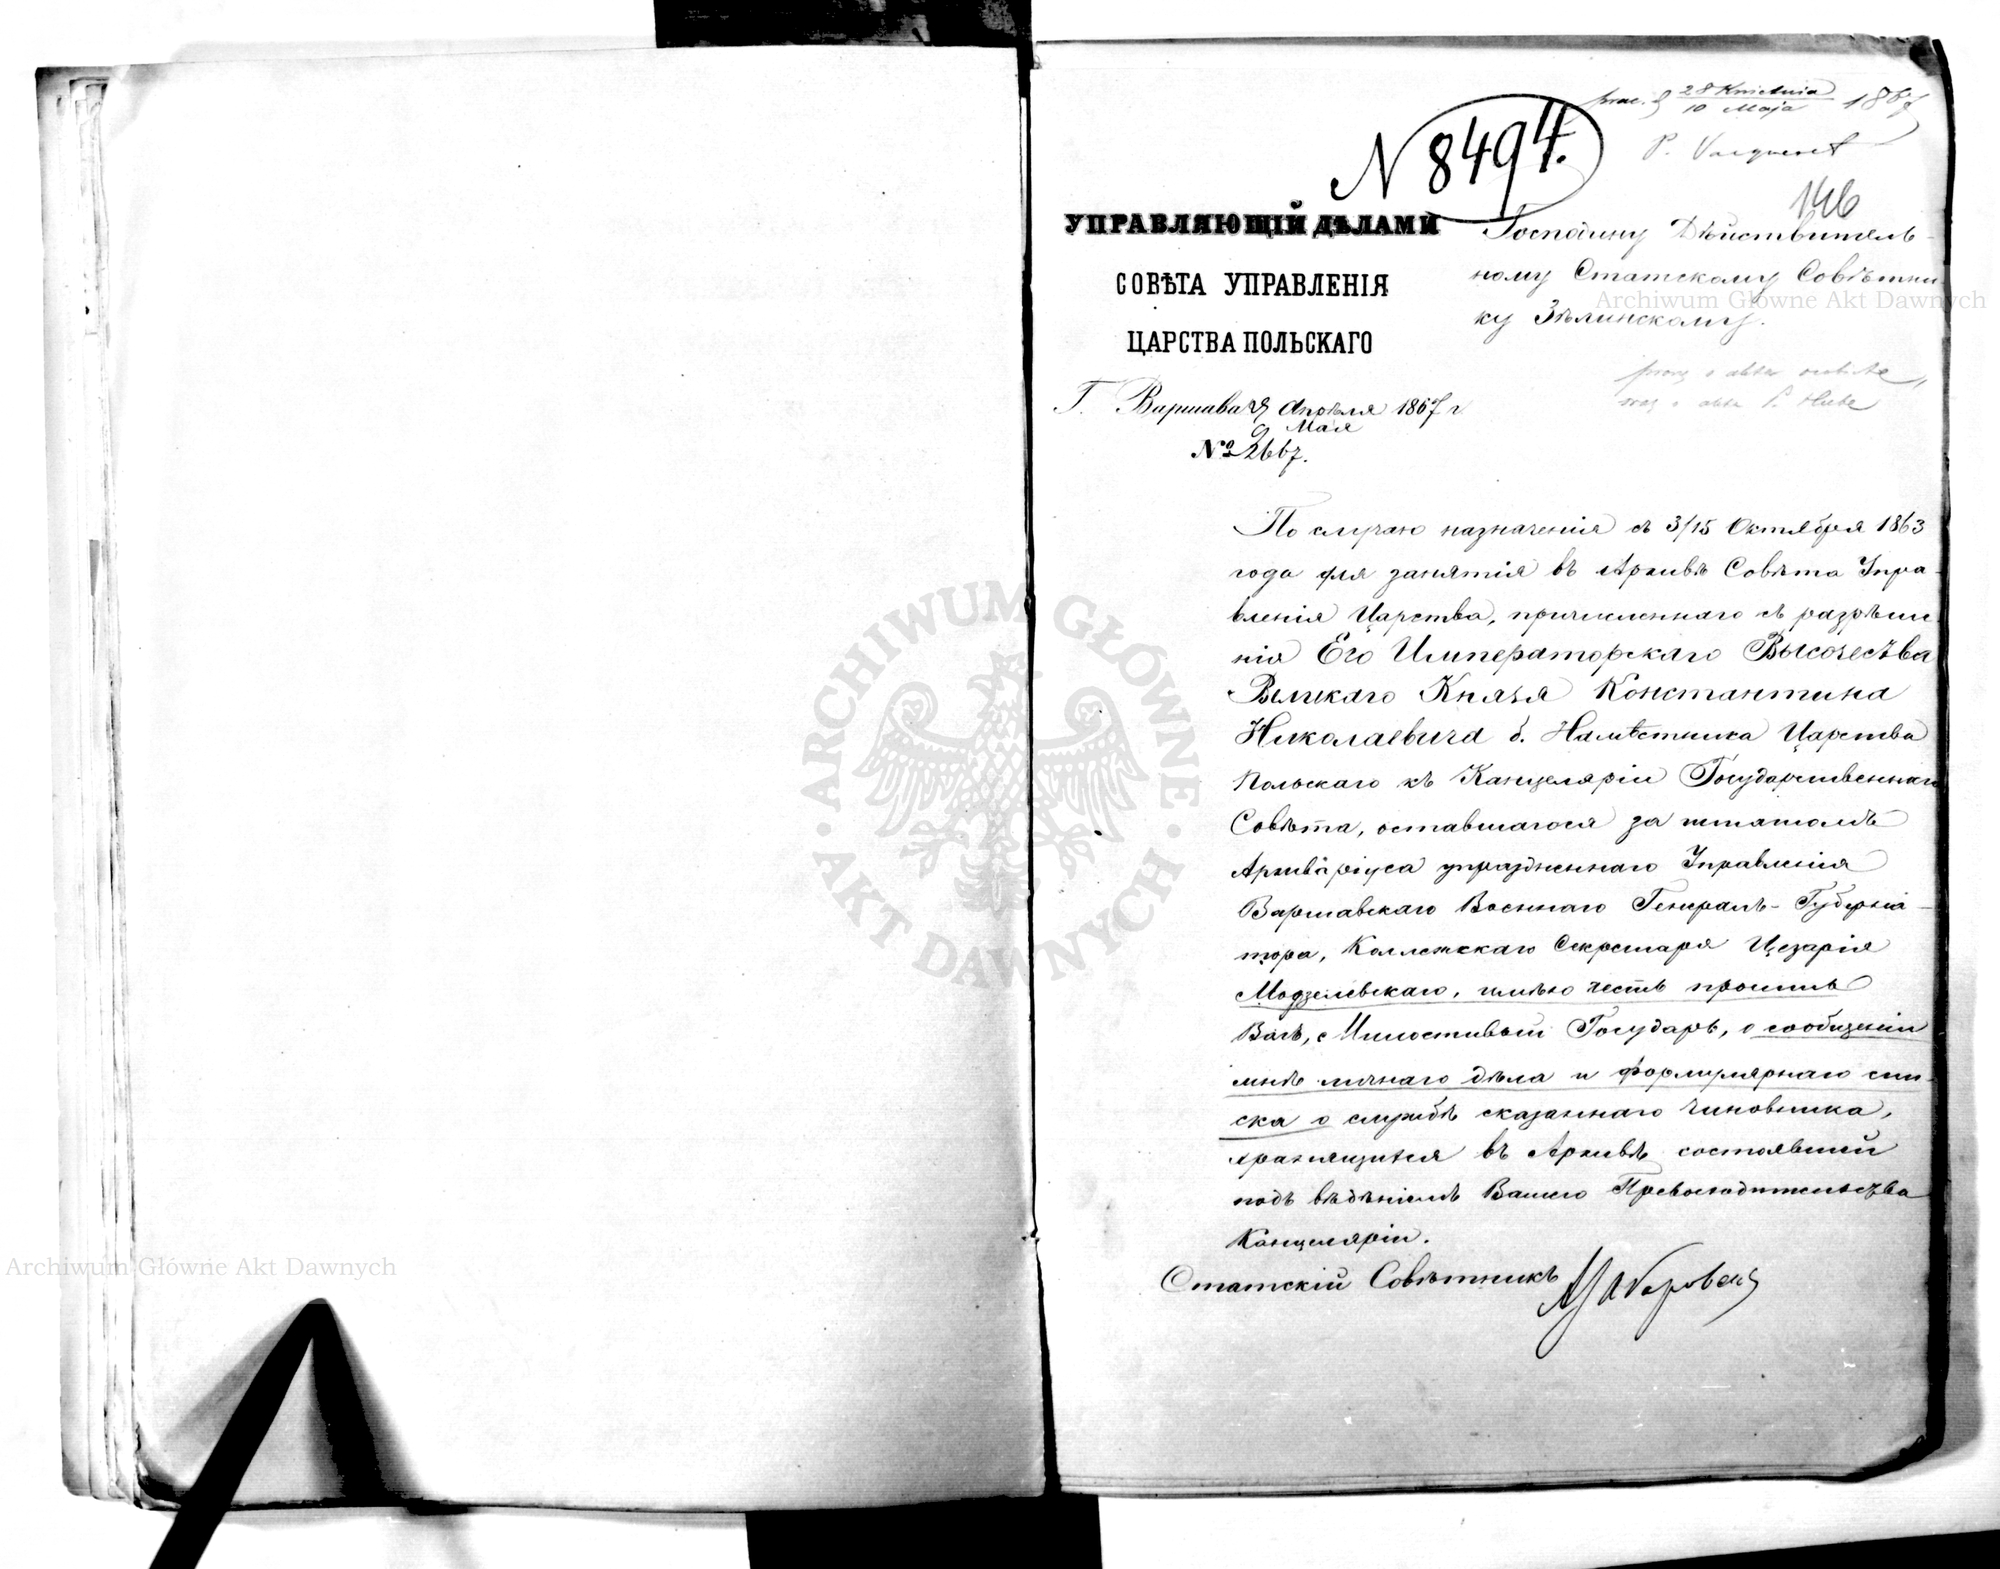 28 Kwietnia
10 Maja 1867
P. Vacqueret
N 8494.
146
УПРАВЛЯЮЩІЙ ДѢЛАМИ
СОВѢТА УПРАВЛЕНІЯ
ЦАРСТВА ПОЛЬСКАГО
Г. Варшава 27 Апрѣля 1867 г
9 Мая
№ 2667.
Господину Дѣйствитель-
ному Статскому Совѣтни
ку Зѣлинскому.
По случаю назначенія съ 3/15 Октября 1863
года для занятія въ Архивѣ Совѣта Упра-
вленія Царства, причисленнаго съ разрѣше
нія Его Императорскаго Высочества
Великаго Князя Константина
Николаевича б. Намѣстника Царства
Польскаго къ Канцеляріи Государственнаго
Совѣта, оставшагося за штатомъ
Архиваріуса упраздненнаго Управленія
Варшавскаго Военнаго Генералъ-Губерна-
тора, Коллежскаго Секретаря Цезарія
Модзелевскаго, имѣю честь просить
Васъ, Милостивый Государь, о сообщеніи
мнѣ личнаго дѣла и формулярнаго спи-
ска о службѣ сказаннаго чиновника,
хранящихся въ Архивѣ состоявшей
подъ вѣдѣніемъ Вашего Превосходительства
Канцеляріи.
Статскій Совѣтникъ
Archiwum Główne Akt Dawnych
Archiwum Główne Akt Dawnych
ARCHIWUM GŁÓWNE · AKT DAWNYCH ·